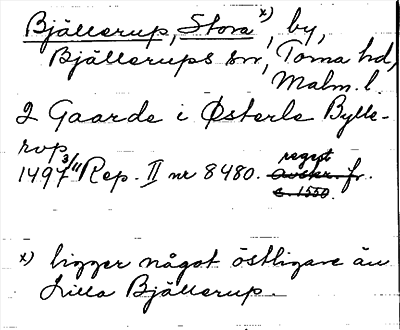 Bjällerup, Stora x), by,
Bjällerups sn, Torna hd,
Malm. l.
2 Gaarde i Østerle Bylle-
rop
1497 3/11 Rep. II nr 8480. regest fr.
Avskr. fr.
c. 1550.
x) ligger något östligare än
Lilla Bjällerup.